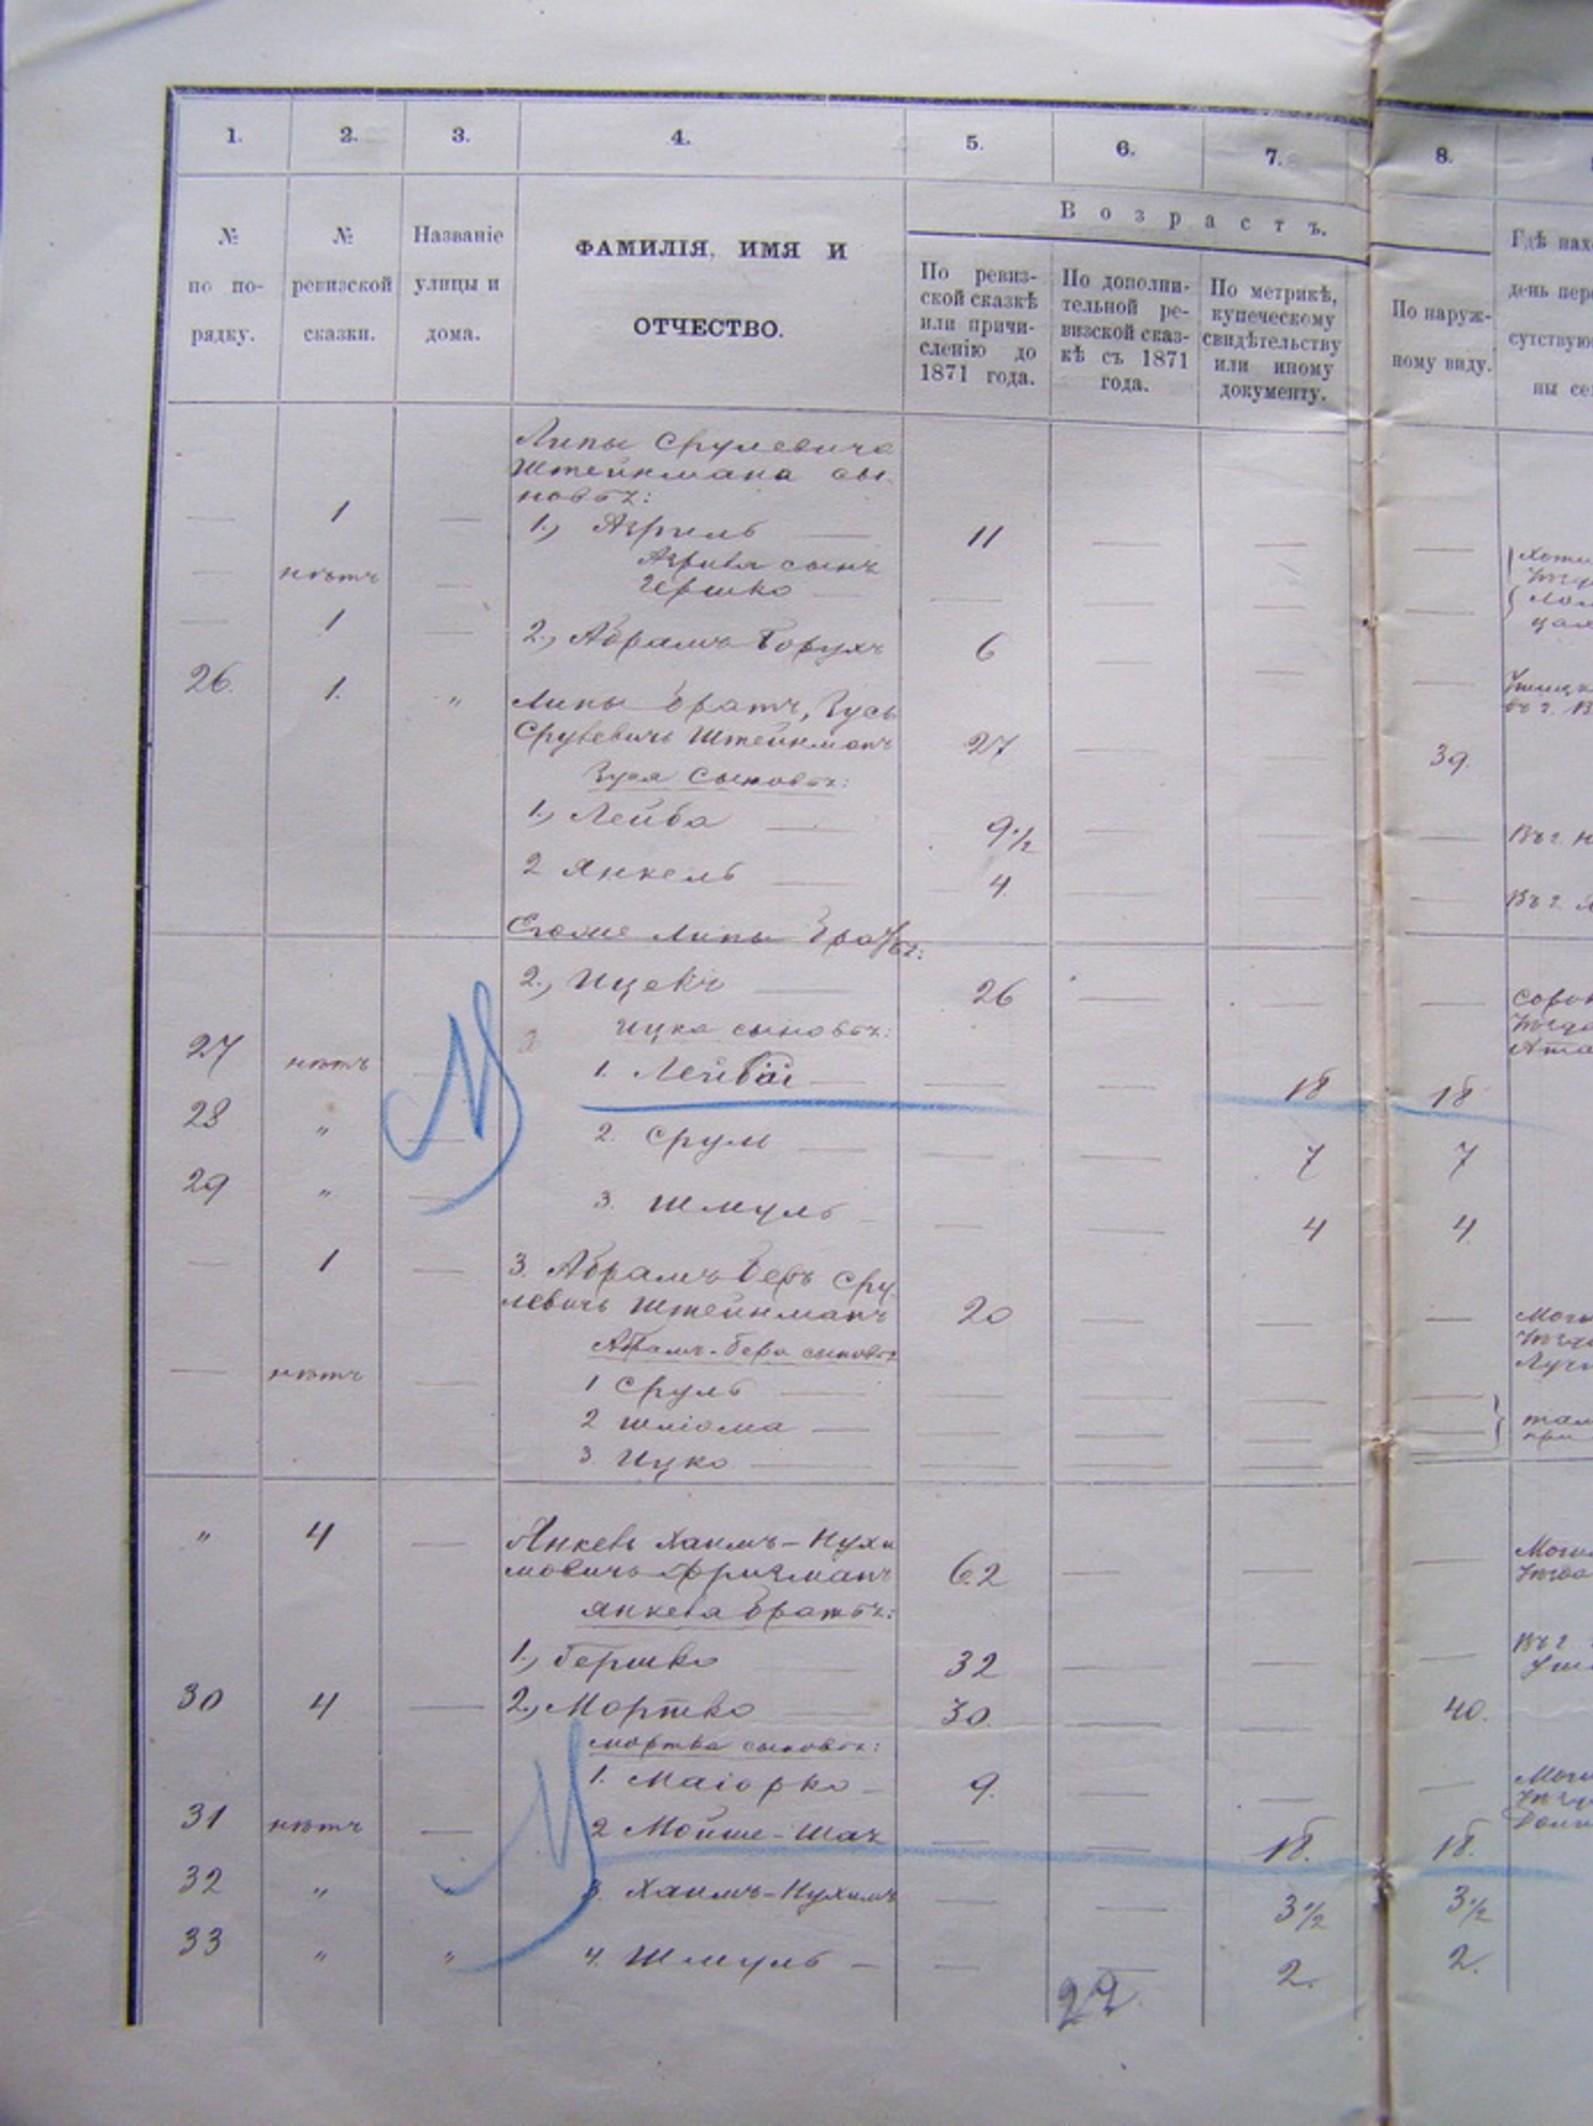 1. 2. 3. 4. 5. 6. 7. 8.
№ по порядку.
№ ревизской сказки.
Названіе улицы и дома.
ФАМИЛІЯ, ИМЯ И
ОТЧЕСТВО.
Возрастъ.
По ревиз-
ской сказкѣ
или причи-
сленію до
1871 года.
По дополни-
тельной ре-
визской сказ-
кѣ съ 1871
года.
По метрикѣ,
купеческому
свидѣтельству
или иному
документу.
По наруж-
ному виду.
Гдѣ нах
день пер
сутствую
ны се
Липы Срулевича
Штейнмана сы-
новья:
1 1., Азриль 11
нѣтъ Азриля сынъ
Гершко
1 2., Абрамъ Борухъ 6
26. 1. „ Липы братъ, Зусь
Срулевичъ Штейнманъ 27 39.
Зуся сыновья:
1., Лейба 9½ Въ г.
2 Янкель 4. Въ г.
Егоже Липы братья:
2., Ицекъ 26
Ицка сыновья:
27 нѣтъ 1. Лейба 18 18
28 „ 2. Сруль 7 7
29 „ 3. Шмуль 4 4.
1 3. Абрамъ Беръ Сру-
левичъ Штейнманъ 20
Абрамъ-Бера сыновья
нѣтъ 1 Сруль
2 Шліома
3. Ицко
„ 4 Янкель Хаимъ-Нухи-
мовичъ Фришманъ 62
Янкеля братья:
1., Гершко 32
30 4 2., Мортко 30. 40.
Мортка сыновья:
1. Маіорко 9.
31 нѣтъ 2 Мойше-Шая 18. 18.
32 „ „ 3. Хаимъ-Нухимъ 3½ 3½
33 „ „ 4. Шмуль 2. 2.
22